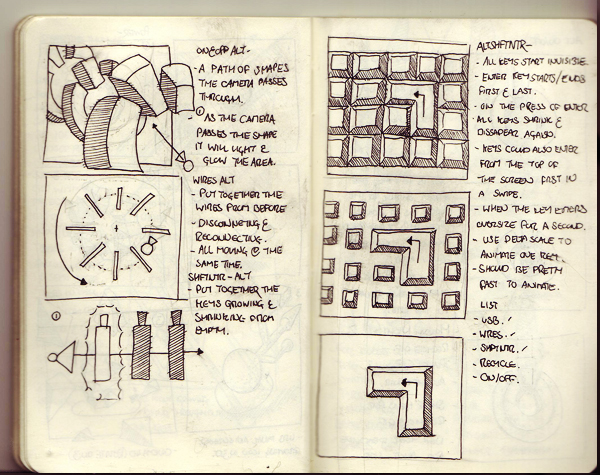 ON/OFF ALT-
- A PATH OF SHAPES
THE CAMERA PASSES
THROUGH.
- ① AS THE CAMERA
PASSES THE SHAPE
IT WILL LIGHT &
GLOW THE AREA.
WIRES ALT
- PUT TOGETHER THE
WIRES FROM BEFORE
- DISCONNECTING &
RECONNECTING.
- ALL MOVING @ THE
SAME TIME.
SHFTNTR- ALT
- PUT TOGETHER THE
KEYS GROWING &
SHRINKING FROM
EMPTY.
①
ALTSHFTNTR-
- ALL KEYS START INVISIBLE
- ENTER KEY STARTS/ENDS
FIRST & LAST.
- ON THE PRESS OF ENTER
ALL KEYS SHRINK &
DISSAPEAR AGAIN.
- KEYS COULD ALSO ENTER
FROM THE TOP OF
THE SCREEN FAST IN
A SWIPE.
- WHEN THE KEY ENTERS
OVERSIZE FOR A SECOND.
- USE SCALE TO
ANIMATE ONE
- SHOULD BE PRETTY
FAST TO ANIMATE.
LIST
- USB. ✓
- WIRES. ✓
- SHFTNTR. ✓
- RECYCLE.
- ON/OFF.